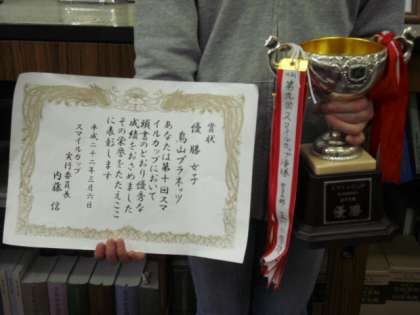 賞状
優勝 女子
烏山プラネッツ
あなたは第十回スマ
イルカップにおいて
頭書のとおり優秀な
成績をおさめました
その栄誉をたたえここ
に表彰します
平成二十二年三月六日
スマイルカップ
実行委員長
内藤 信
第九回スマイルカップ優勝
優勝